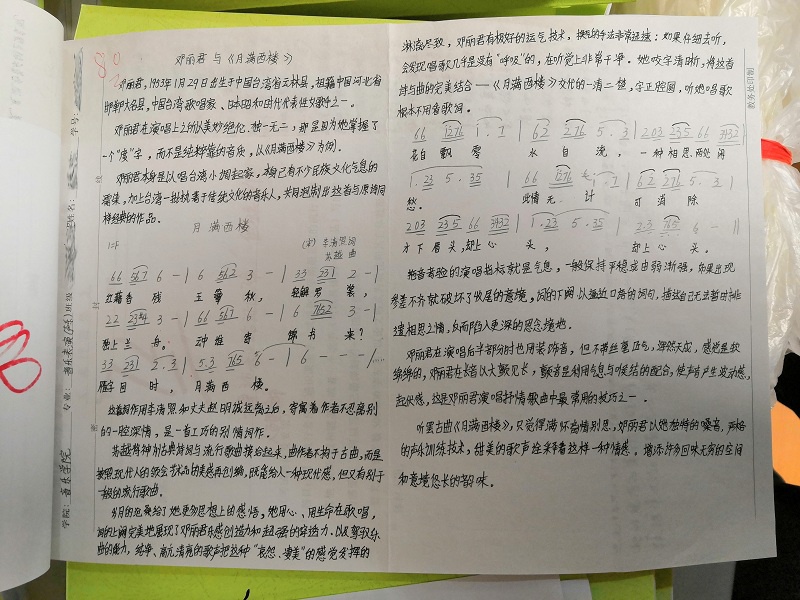 邓丽君 与《月满西楼》
邓丽君，1953年1月29日出生于中国台湾省云林县，祖籍中国河北省
邯郸大名县，中国台湾歌唱家、日本昭和时代代表性女歌手之一。
邓丽君在演唱上之所以美妙绝伦、独一无二；那是因为她掌握了
一个“度”字，而不是纯粹靠的音乐，以《月满西楼》为例。
邓丽君本身是以唱台湾小调起家，本身已有不少民族文化气息的
濡染，加上台湾一批執著于传统文化的音乐人，共同炮制出这首与原诗同
样经典的作品。
月 满 西 楼
1=F
(宋) 李清照 词
苏越 曲
66 567 6 - | 6 562 3 - | 33 231 2 - |
红藕香 残 玉簟 秋， 轻解罗 裳，
22 2344 3 - | 66 567 6 - | 6 7652 3 - |
独上兰 舟。 云中谁 寄 锦书 来？
33 231 2·3 | 5·3 765 6 - | 6 - - - |
雁字回 时， 月满西 楼。
这首词作用李清照和丈夫赵明诚远离之后，寄寓着作者不忍离别
的一腔深情，是一首工巧的别情词作。
苏越精神为古典诗词与流行歌曲接给起来，曲作者不拘于古曲，而是
按照现代人的综合艺术品的美感再创编，既能给人一种现代感，但又有别于
一般的流行歌曲。
岁月的沧桑给了她更多思想上的感悟，她用心、用生命在歌唱，
词的上阕完美地展现了邓丽君乐感创造力和超强的穿透力，以及驾驭乐
曲的能力，纯净、高亢清亮的歌声把这种“哀怨、凄美”的感觉发挥的
淋漓尽致，邓丽君有极好的运气技术，换气的手法非常迅速；如果仔细去听，
会发现唱歌几乎是没有“呼吸”的，在听觉上非常干净。她咬字清晰，将这首
诗与曲的完美结合——《月满西楼》交代的一清二楚，字正腔圆，听她唱歌
根本不用看歌词。
66 1276 i·7 | 62 276 5·3 | 203 235 66 3432 |
花自飘 零 水自 流， 一种 相思，两处闲
1·23 5·35 | 66 1276 i·7 | 62 276 5·3 |
愁。 此情无 计 可 消 除
203 235 66 3432 | 1·23 5·35 | 23 765 6 - - |
才下 眉头，却上心 头， 却上心 头。
拖音考验的演唱指标就是气息，一般保持平稳或由弱渐强，如果出现
参差不齐就破坏了收尾的意境，词的下阕以逼近口语的词句，描述自己无法暂时排
遣相思之情，反而陷入更深的思念境地。
邓丽君在演唱后半部分时也用装饰音，但不带丝毫匠气，浑然天成，感觉是软
绵绵的，邓丽君在长音以大颤见长，颤音是利用气息与喉结的配合，使声音产生波动感，
起伏感，这是邓丽君演唱抒情歌曲中最常用的技巧之一。
听罢古曲《月满西楼》，只觉得满怀着情别思，邓丽君以她独特的嗓音，严格
的声乐训练技术，甜美的歌声诠释着这样一种情感，增添许多回味无穷的空间
和意境悠长的韵味。
学院：音乐学院
专业：音乐表演(声乐)
班级
姓名：
学号：
教务处印制
80